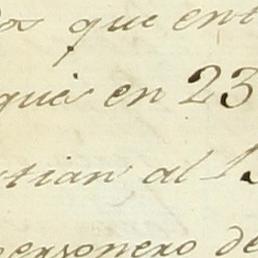 os que ent
que en 23
tian al 1
personero de